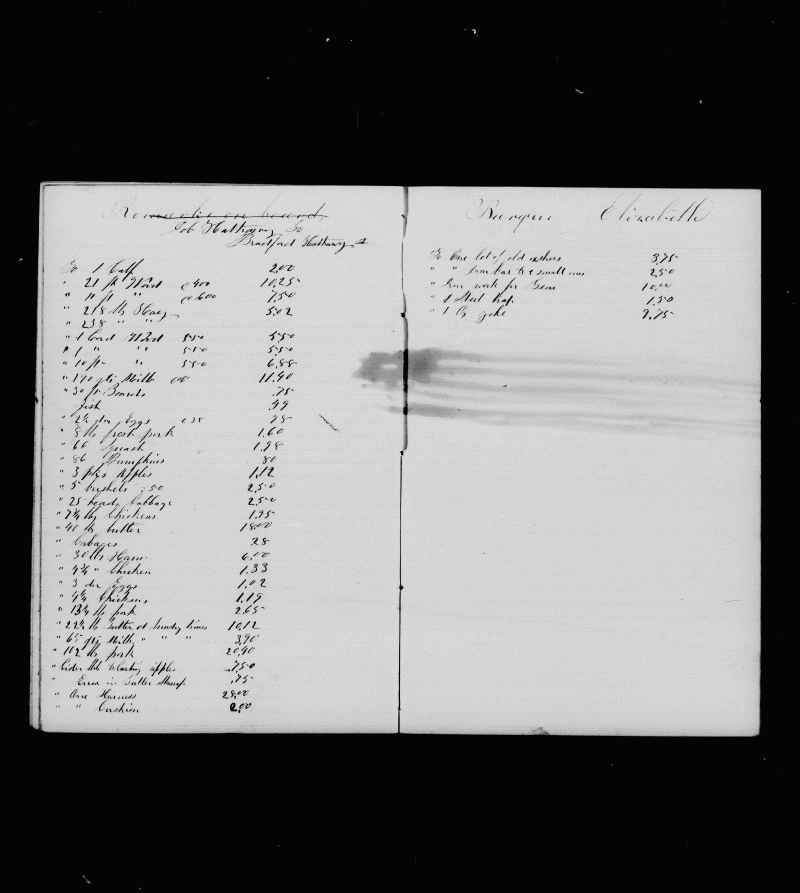 Remarks on board
Job Hathaway To
Bradford Hathaway
To 1 Calf 2.00
" 21 ft Wood @ 400 10.25
" 10 ft " @ 600 7.50
" 218 lbs Hay 5.02
" 238 " "
" 1 Cord Wood 550 5.50
" 1 " " 550 5.50
" 10 ft " 550 6.88
" 190 qts Milk 11.40
" 30 ft Boards .75
" .49
" doz Eggs
" 8 lb fresh pork 1.60
" 66 Squash 1.98
" 86 Pumpkins 80
" 3 pks Apples 1.12
" 5 bushels 50 2.50
" 25 heads Cabbage 2.50
" 7¾ lbs Chickens 1.95
" 40 lb butter 18.00
" Cabages .28
" 30 lbs Ham 6.00
" " Chicken 1.33
" 3 doz Eggs 1.02
" Chickens 1.19
" 13¼ lb pork 2.65
" 22½ lb Butter at Sundry times 10.12
" 65 qts Milk " " " 3.90
" 102 lb pork 20.40
" Cider apples 7.50
" Error in Butter .75
" One Harness 28.00
" " Cushion 2.00
Barque Elizabeth
To One lot of old 3.75
" " Iron bar & 2 small 2.50
" Iron work for 10.00
" 1 Steel trap 1.50
" 1 Ox yoke